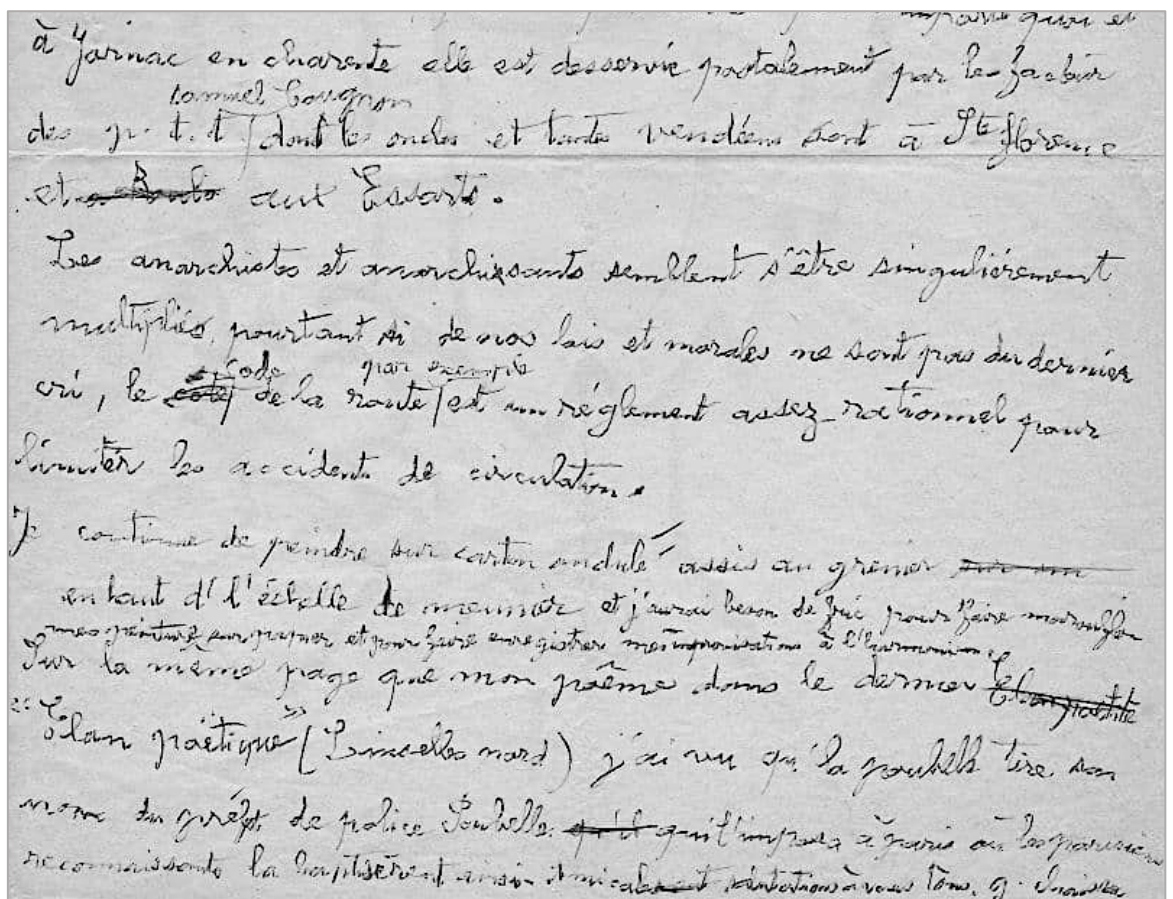 importe quoi et
à Jarnac en charente elle est desservie postalement par le facteur
samuel Cougnon
des p. t. t dont les oncles et tantes vendéens sont à Ste florence
et aux Essarts.
Les anarchistes et anarchissants semblent s'être singulièrement
multipliés, pourtant si de nos lois et morales ne sont pas du dernier
code par exemple
cri, le de la route est un réglement assez rationnel pour
limiter les accidents de circulation.
Je continue de peindre sur carton ondulé assis au grenier sur un
en haut d' l'échelle de meunier et j'aurai besoin de fric pour faire maroufler
mes peintures sur papier et pour faire enregistrer mes improvisations à l'harmonium
Sur la même page que mon poême dans le dernier
"Elan poëtique" (Linselles nord) j'ai vu qu' la poubelle tire son
nom du préfet de police Poubelle qu'il qui l'imposa à paris où les parisiens
reconnaissants la baptisèrent ainsi amicales salutations à vous tous. g. chaissac